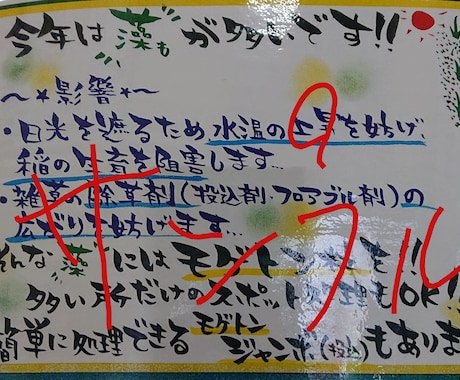 今年は藻もが多いです!!
～*影響*～
・日光を遮るため水温の上昇を妨げ、
稲の生育を阻害します…
・雑草の除草剤(投込剤・フロアブル剤)の
広がりを妨げます…
そんな藻にはモゲトン を!!
多い所だけのスポット処理もOK!!
簡単に処理できるモゲトン
ジャンボ(投込)もありま
サンプル